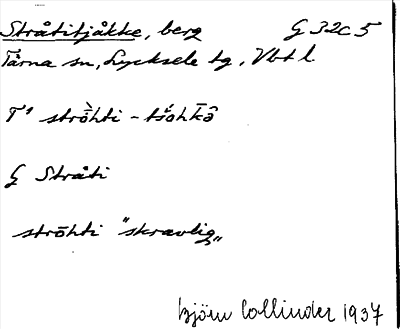 Stråtitjåkke, berg G 32c5
Tärna sn, Lycksele lg, Vbt l
T¹ strṑhti - tśohkō̂
G Stråti
strōhti "skravlig"
Björn Collinder 1937